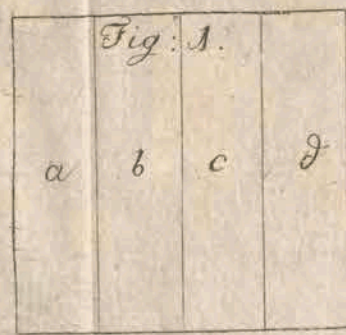 Fig: 1.
a b c d